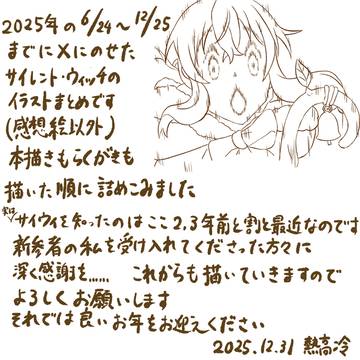 2025年の6/24〜12/25
までにXにのせた
サイレント・ウィッチの
イラストまとめです
(感想絵以外)
本描きもらくがきも
描いた順に詰めこみました
実はサイウィを知ったのはここ2,3年前と割と最近なのです
新参者の私を受け入れてくださった方々に
深く感謝を…… これからも描いていきますので
よろしくお願いします
それでは良いお年をお迎えください
2025.12.31 熱高冷